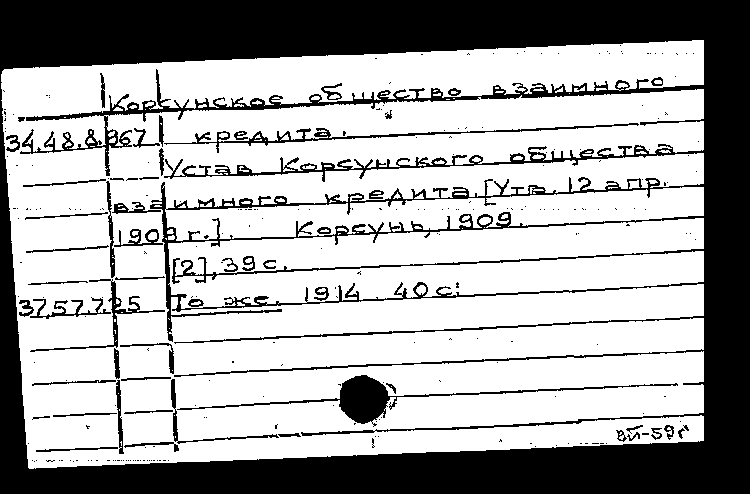 Корсунское общество взаимного
34.48.8.967 кредита.
Устав Корсунского общества
взаимного кредита. [Утв. 12 апр.
1909 г.]. Корсунь, 1909.
[2], 39 с.
37.57.7.25 То же. 1914. 40 с.